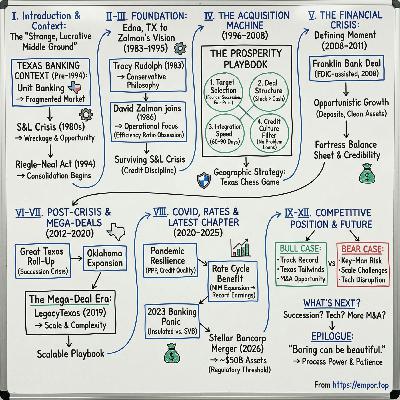 I. Introduction &
Context:
The "Strange, Lucrative
Middle Ground"
TEXAS BANKING
CONTEXT (Pre-1994):
Unit Banking
→ Fragmented Market
S&L Crisis (1980s)
→ Wreckage & Opportunity
Riegle-Neal Act (1994)
→ Consolidation Begins
II-III. FOUNDATION:
Edna, TX to
Zalman's Vision
(1983-1995)
Tracy Rudolph (1983)
→ Conservative
Philosophy
David Zalman joins
(1986)
→ Operational Focus
(Efficiency Ratio Obsession)
Surviving S&L Crisis
(Credit Discipline)
IV. THE ACQUISITION
MACHINE
(1996-2008)
THE PROSPERITY
PLAYBOOK
1. Target
Selection
2. Deal
Structure
(Stock > Cash)
3. Integration
Speed
(60-90 Days)
4. Credit
Culture
Filter
(No Problem
Loans)
Geographic Strategy:
Texas Chess Game
V. THE FINANCIAL
CRISIS:
Defining Moment
(2008-2011)
Franklin Bank Deal
(FDIC-assisted, 2008)
Opportunistic Growth
(Deposits, Clean Assets)
Fortress Balance
Sheet & Credibility
VI-VII. POST-CRISIS &
MEGA-DEALS
(2012-2020)
Great Texas
Roll-Up
(Succession Crisis)
Oklahoma
Expansion
The Mega-Deal Era:
LegacyTexas (2019)
→ Scale & Complexity
Scalable Playbook
VIII. COVID, RATES &
LATEST CHAPTER
(2020-2025)
Pandemic
Resilience
(PPP, Credit Quality)
Rate Cycle
Benefit
(NIM Expansion →
Record Earnings)
2023 Banking
Panic
(Insulated vs. SVB)
Stellar Bancorp
Merger (2026)
→ ~$50B Assets
(Regulatory Threshold)
IX-XII. COMPETITIVE
POSITION & FUTURE
BULL CASE:
• Track Record
• Texas Tailwinds
• M&A Opportunity
VS
BEAR CASE:
• Key-Man Risk
• Scale Challenges
• Tech Disruption
WHAT'S NEXT?
Succession? Tech? More M&A?
EPILOGUE:
"Boring can be beautiful."
→ Process Power & Patience
From https://empor.top